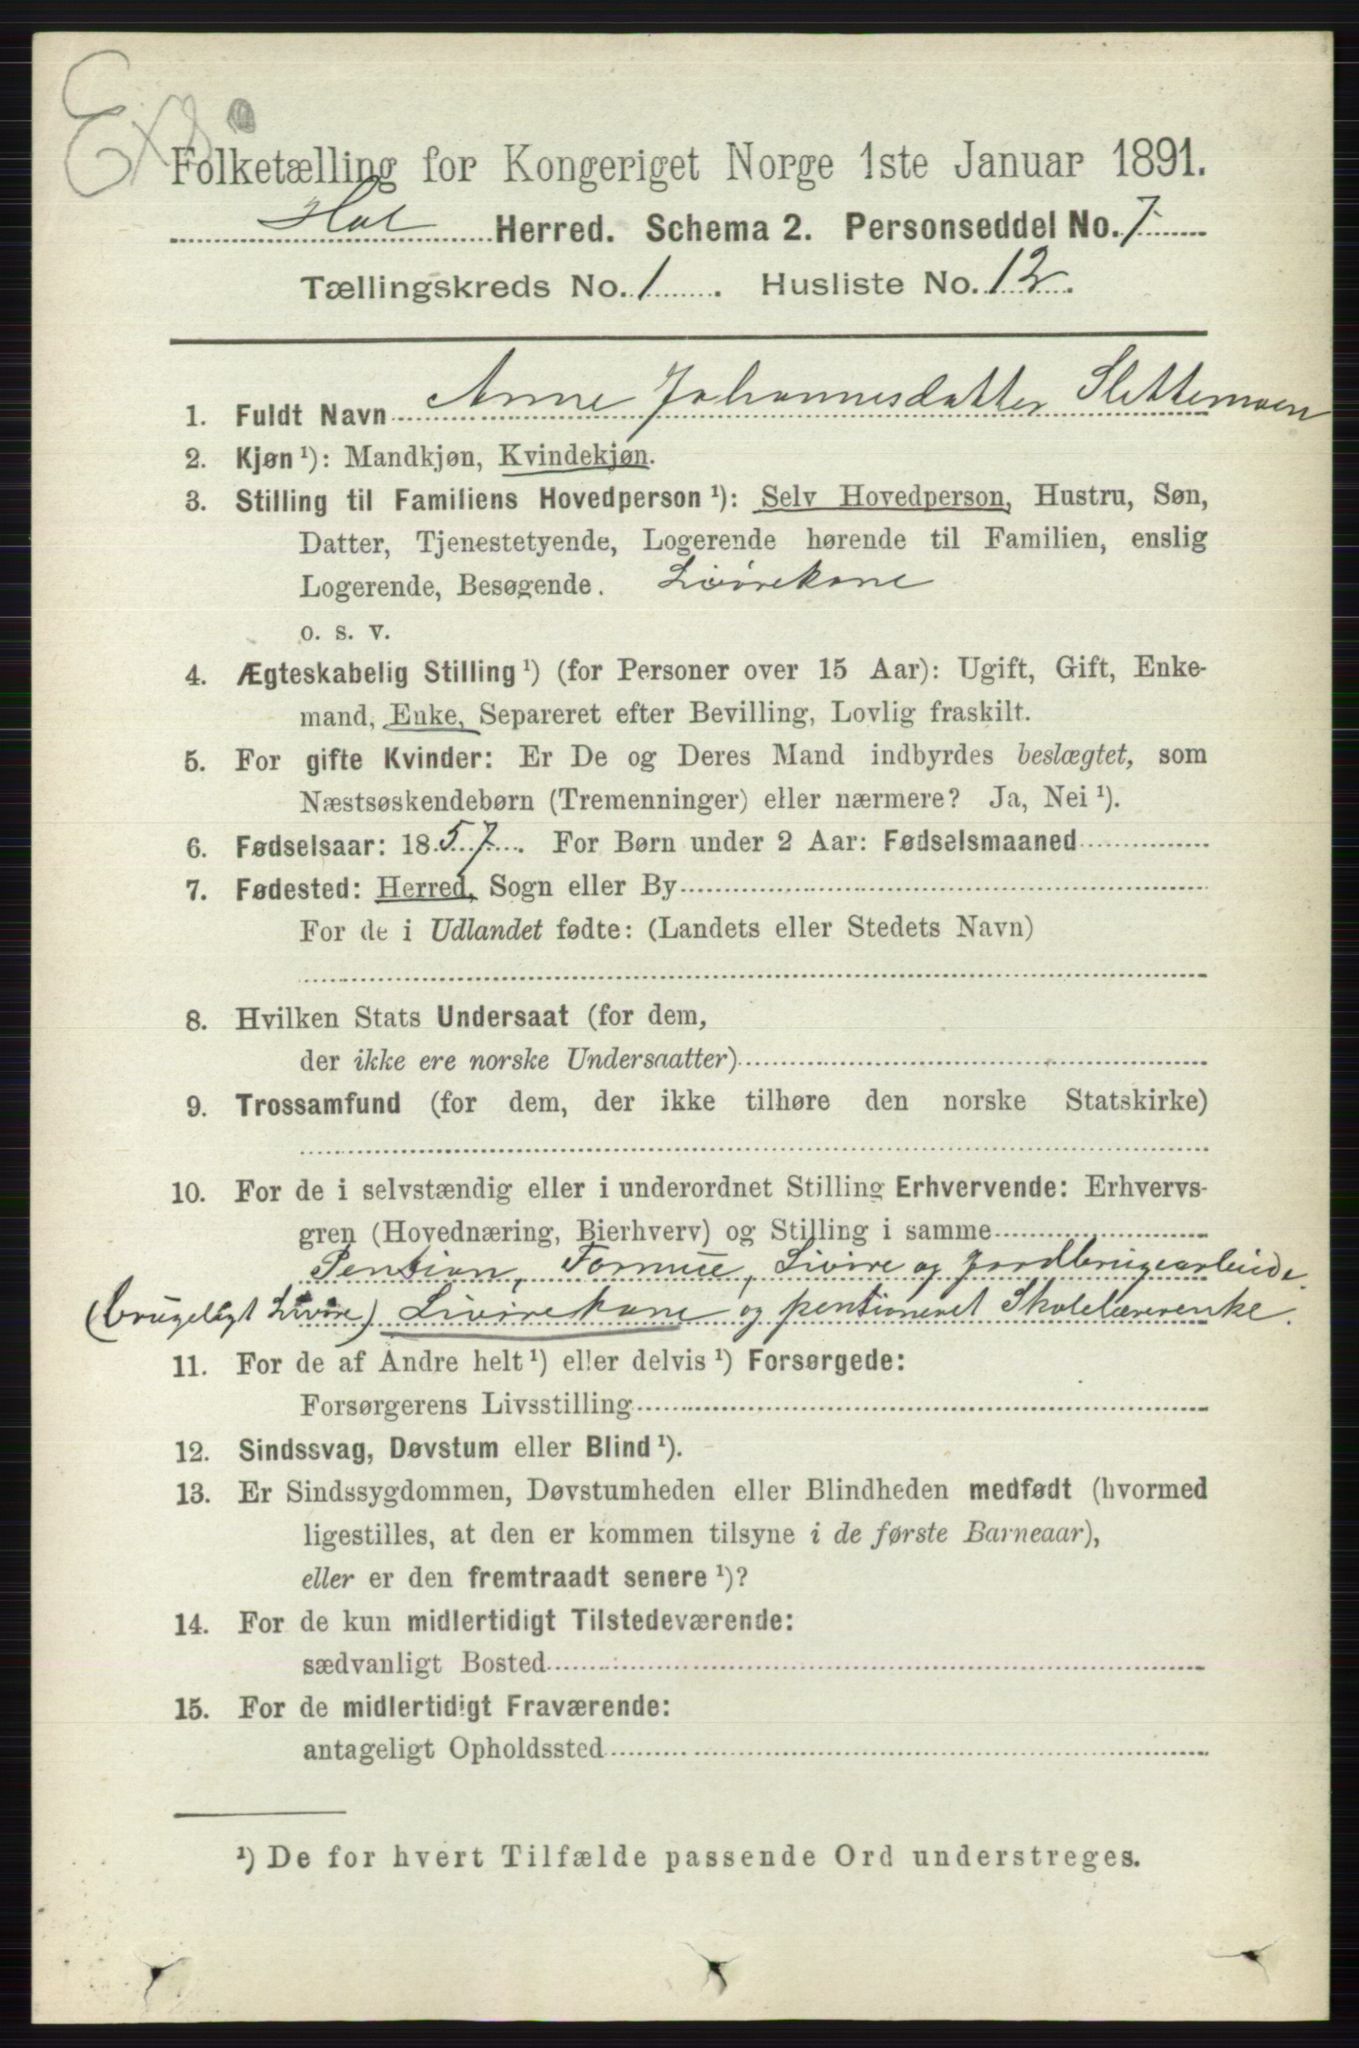 Exp.
Folketælling for Kongeriget Norge 1ste Januar 1891.
Hol Herred. Schema 2. Personseddel No. 7
Tællingskreds No. 1. Husliste No. 12.
1. Fuldt Navn Anne Johannesdatter Slettemoen
2. Kjøn ¹): Mandkjøn, Kvindekjøn.
3. Stilling til Familiens Hovedperson ¹): Selv Hovedperson, Hustru, Søn,
Datter, Tjenestetyende, Logerende hørende til Familien, enslig
Logerende, Besøgende. Livørekone
o. s. v.
4. Ægteskabelig Stilling ¹) (for Personer over 15 Aar): Ugift, Gift, Enke-
mand, Enke, Separeret efter Bevilling, Lovlig fraskilt.
5. For gifte Kvinder: Er De og Deres Mand indbyrdes beslægtet, som
Næstsøskendebørn (Tremenninger) eller nærmere? Ja, Nei ¹).
6. Fødselsaar: 1857. For Børn under 2 Aar: Fødselsmaaned
7. Fødested: Herred, Sogn eller By
For de i Udlandet fødte: (Landets eller Stedets Navn)
8. Hvilken Stats Undersaat (for dem,
der ikke ere norske Undersaatter)
9. Trossamfund (for dem, der ikke tilhøre den norske Statskirke)
10. For de i selvstændig eller i underordnet Stilling Erhvervende: Erhvervs-
gren (Hovednæring, Bierhverv) og Stilling i samme
Pension, Formue, Livøre og Jordbrugsarbeide.
(brugeligt Livøre) Livørekone og pensioneret Skolelærerenke.
11. For de af Andre helt ¹) eller delvis ¹) Forsørgede:
Forsørgerens Livsstilling
12. Sindssvag, Døvstum eller Blind ¹).
13. Er Sindssygdommen, Døvstumheden eller Blindheden medfødt (hvormed
ligestilles, at den er kommen tilsyne i de første Barneaar),
eller er den fremtraadt senere ¹)?
14. For de kun midlertidigt Tilstedeværende:
sædvanligt Bosted
15. For de midlertidigt Fraværende:
antageligt Opholdssted
¹) De for hvert Tilfælde passende Ord understreges.